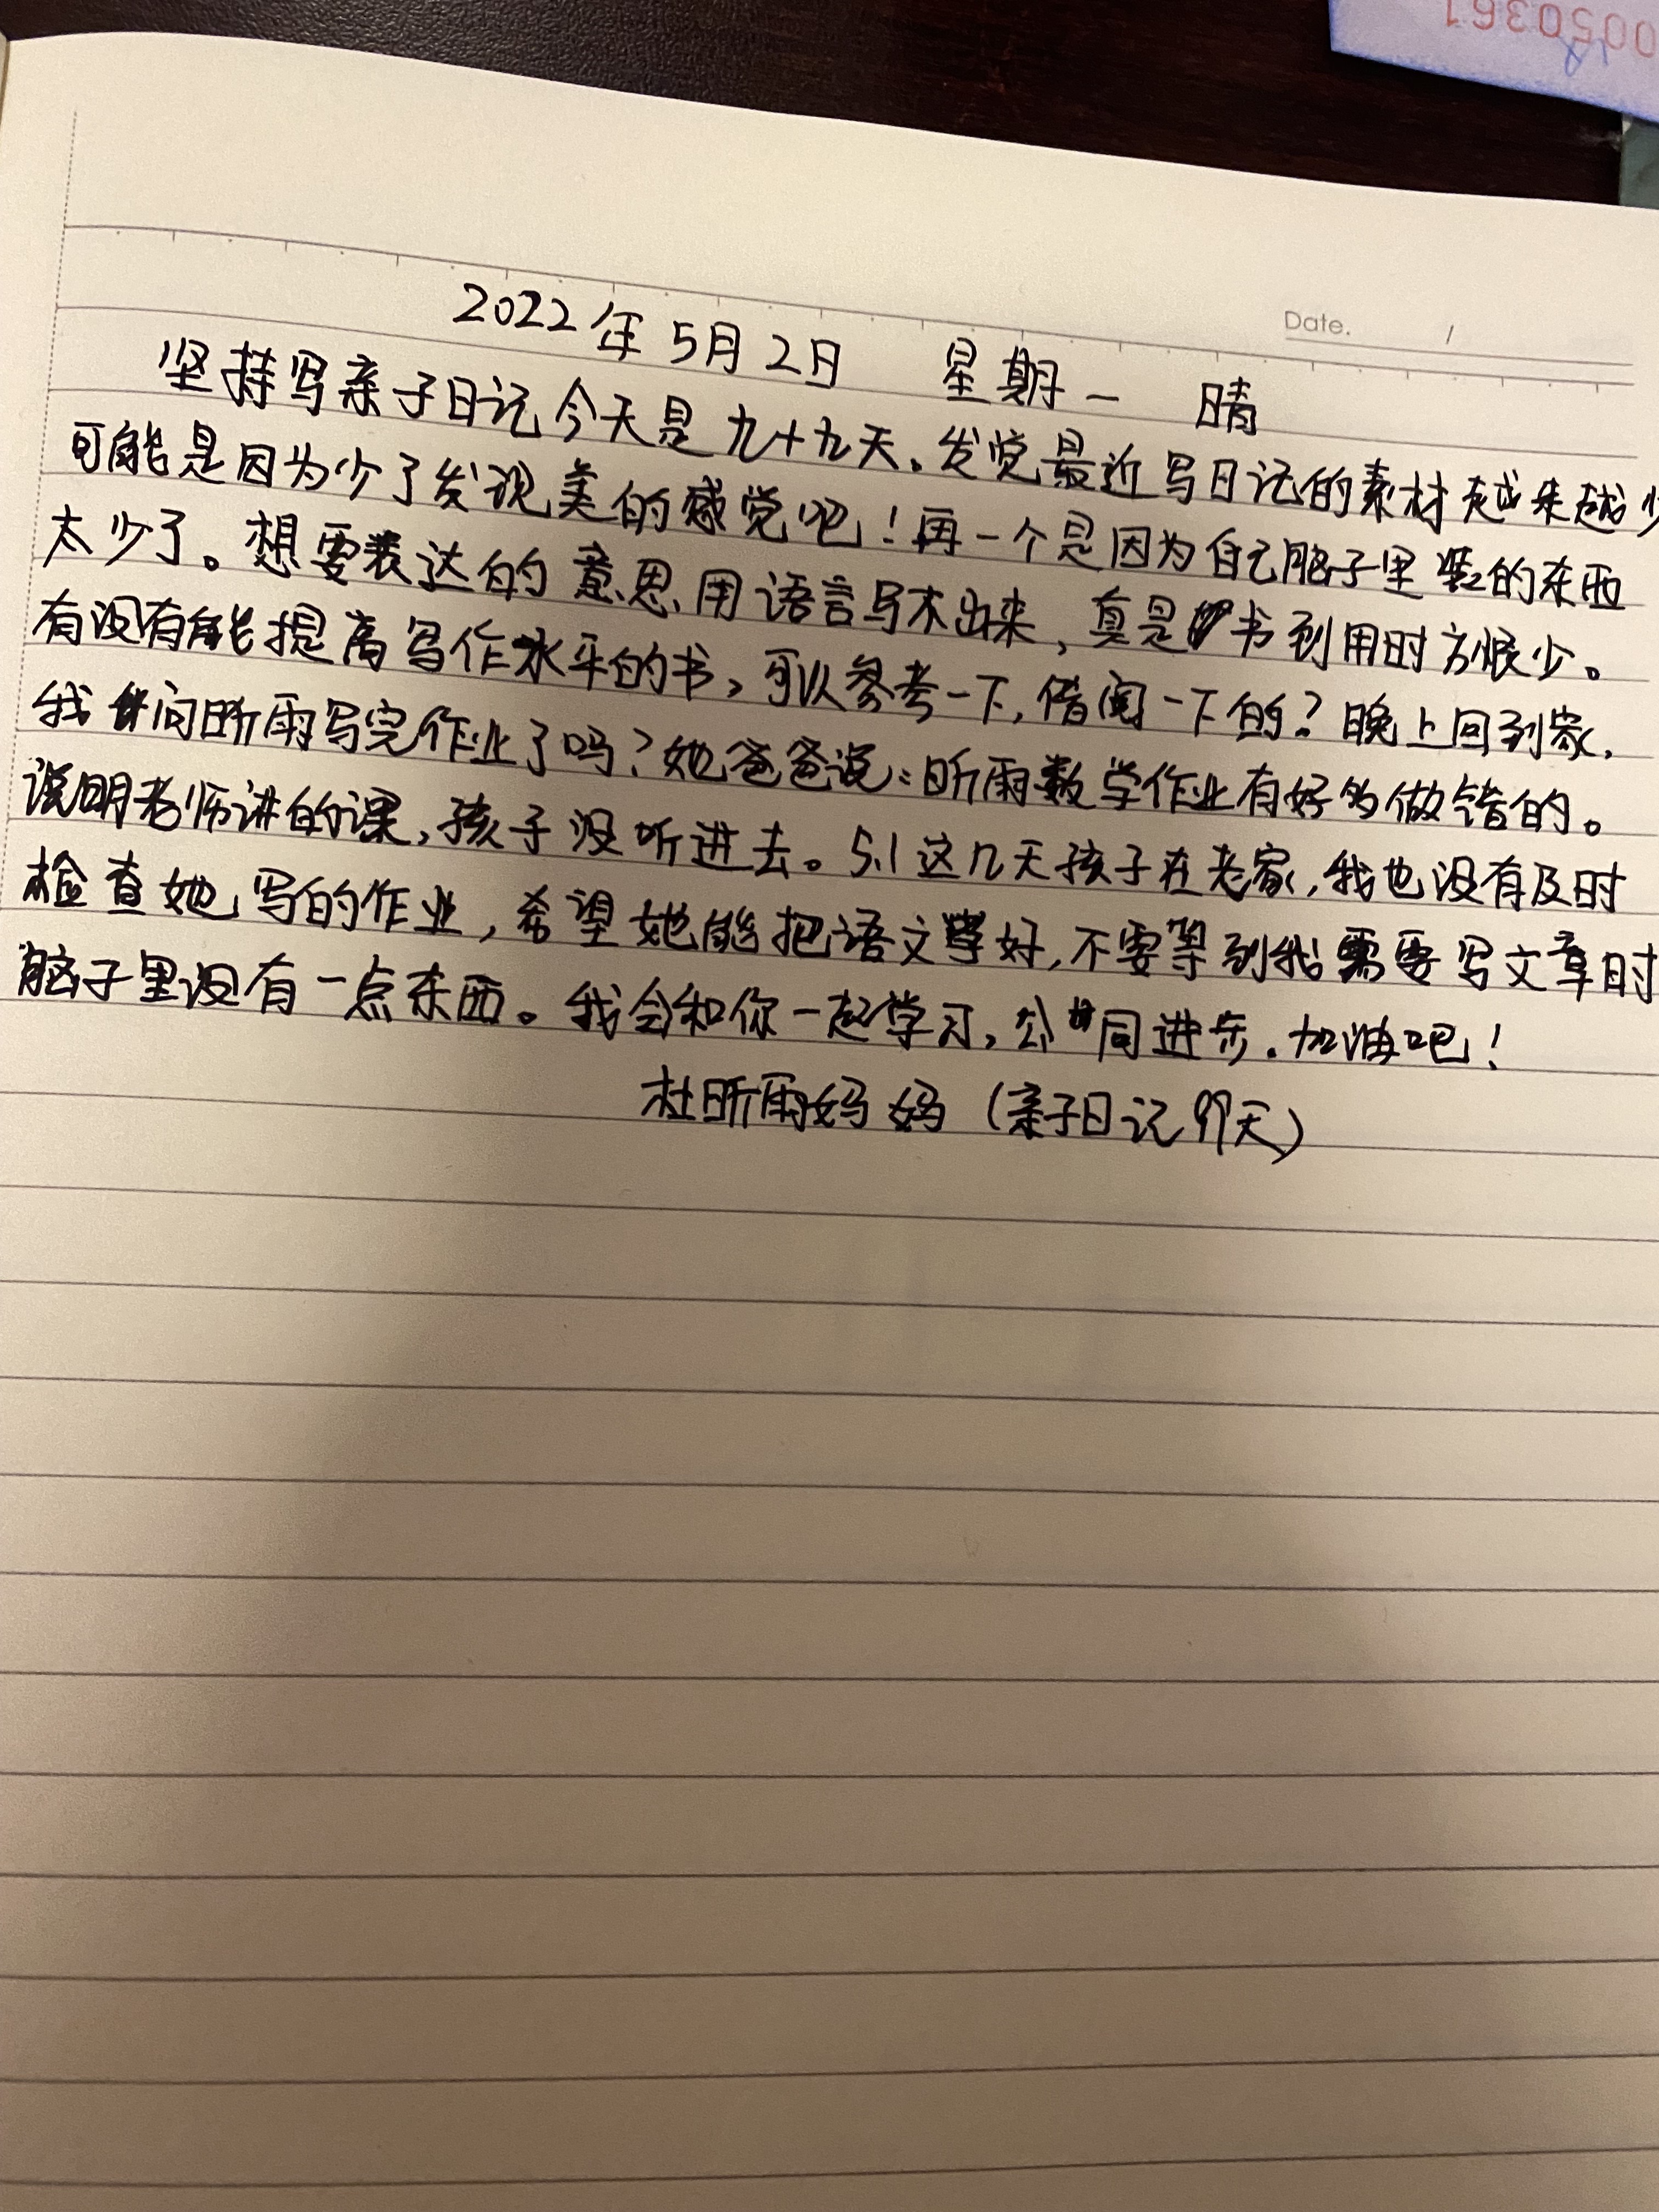 0050361
Date. /
2022年5月2日 星期一 晴
坚持写亲子日记今天是九十九天。发觉最近写日记的素材越来越少
可能是因为少了发现美的感觉吧！再一个是因为自己脑子里装的东西
太少了。想要表达的意思，用语言写不出来，真是书到用时方恨少。
有没有能提高写作水平的书，可以参考一下，借阅一下的？晚上回到家，
我问昕雨写完作业了吗？她爸爸说：昕雨数学作业有好多做错的。
说明老师讲的课，孩子没听进去。5.1这几天孩子在老家，我也没有及时
检查她写的作业，希望她能把语文学好，不要等到我需要写文章时
脑子里没有一点东西。我会和你一起学习，公同进步。加油吧！
杜昕雨妈妈（亲子日记99天）